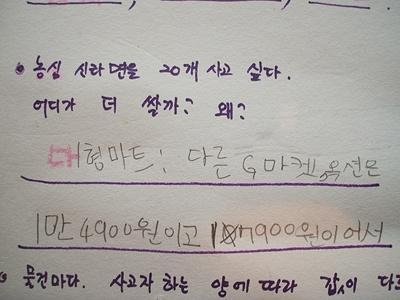 농심 신라면을 20개 사고 싶다.
어디가 더 쌀까? 왜?
대형마트: 다른 G마켓, 옥션은
1만 4900원이고 17900원이어서
물건마다. 사고자 하는 양에 따라 값이 다르